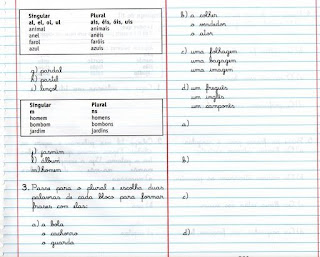 Singular Plural
al, el, oi, ul ais, éis, óis, uis
animal animais
anel anéis
farol faróis
azul azuis
g) pardal
h) pastel
i) lençol
Singular Plural
m ns
homem homens
bombom bombons
jardim jardins
j) jasmim
l) álbum
m) homem
3. Passe para o plural e escolha duas
palavras de cada bloco para formar
frases com elas:
a) a bola
o cachorro
o guarda
b) a colher
o vendedor
o ator
c) uma folhagem
uma bagagem
uma imagem
d) um freguês
um inglês
um camponês
a)
b)
c)
d)